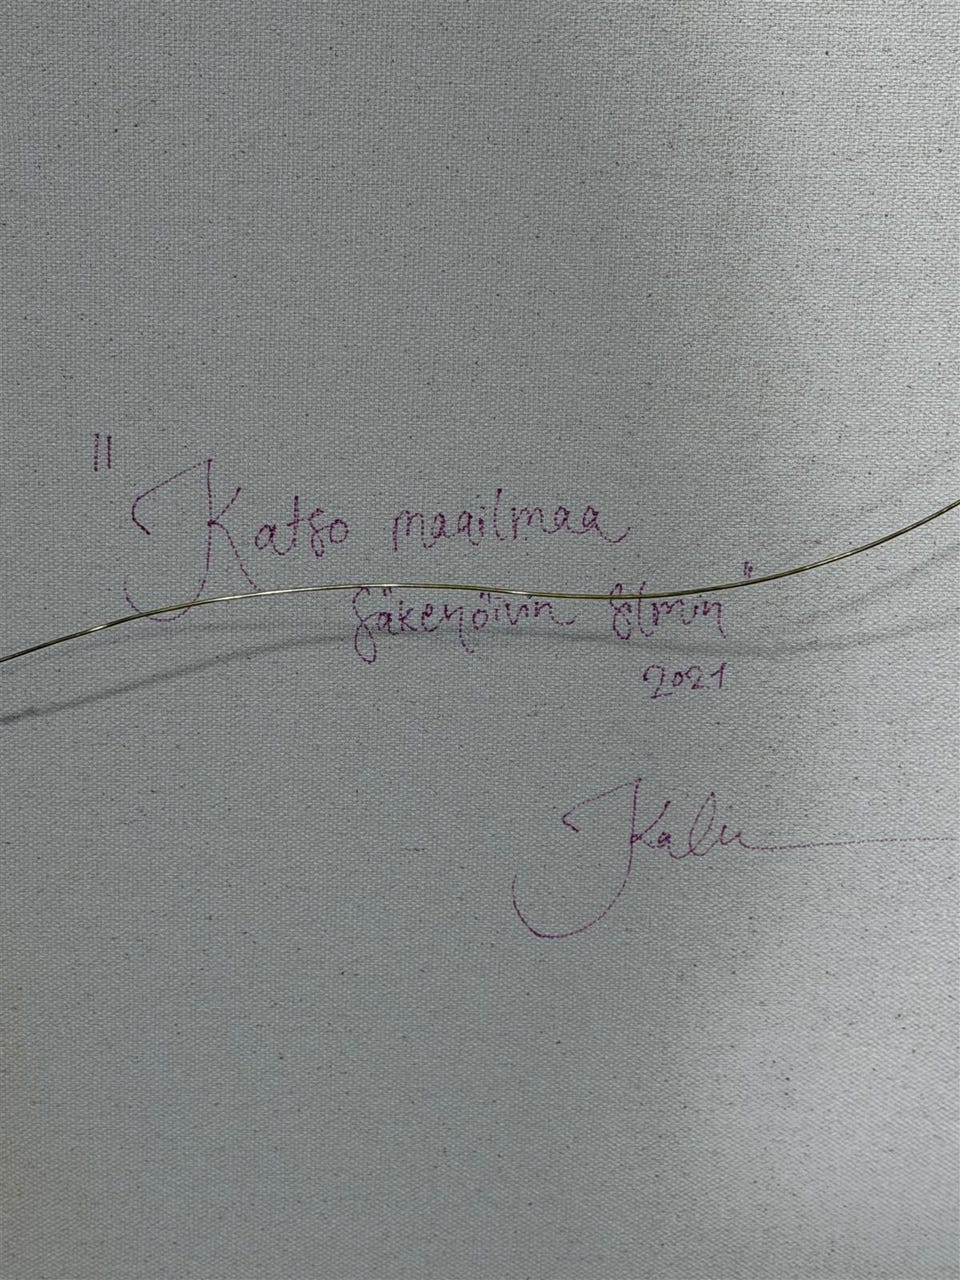 "Katso maailmaa
säkenöivin silmin"
2021